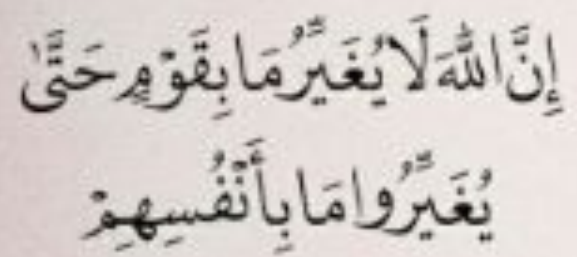 إِنَّ اللَّهَ لَا يُغَيِّرُ مَا بِقَوْمٍ حَتَّىٰ
يُغَيِّرُوا مَا بِأَنْفُسِهِمْ